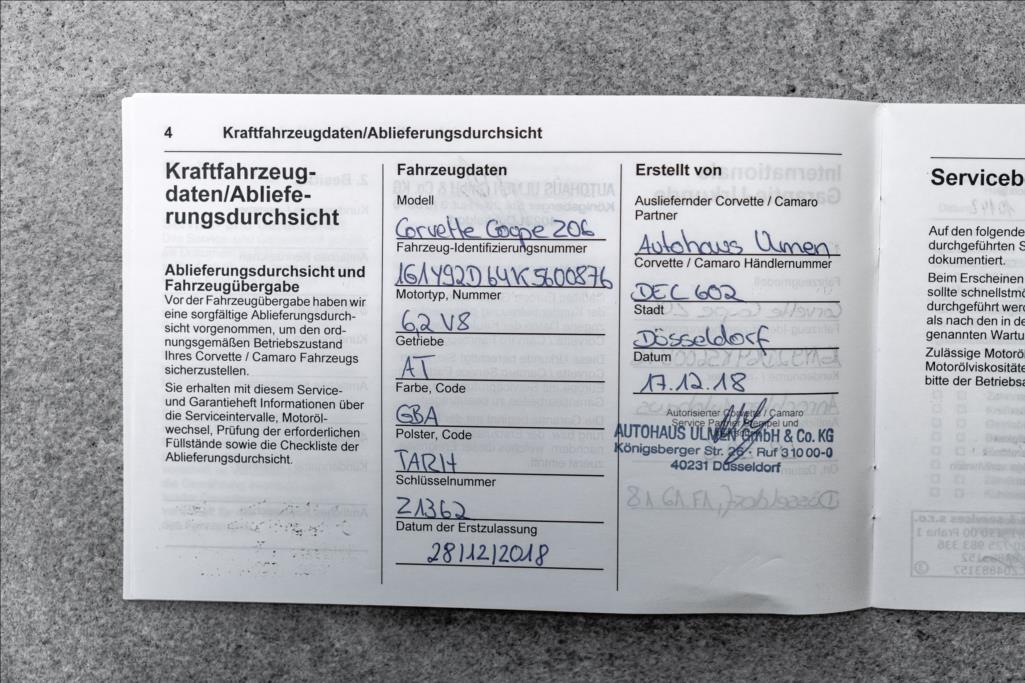 4 Kraftfahrzeugdaten/Ablieferungsdurchsicht
Kraftfahrzeug-
daten/Abliefe-
rungsdurchsicht
Ablieferungsdurchsicht und
Fahrzeugübergabe
Vor der Fahrzeugübergabe haben wir
eine sorgfältige Ablieferungsdurch-
sicht vorgenommen, um den ord-
nungsgemäßen Betriebszustand
Ihres Corvette / Camaro Fahrzeugs
sicherzustellen.
Sie erhalten mit diesem Service-
und Garantieheft Informationen über
die Serviceintervalle, Motoröl-
wechsel, Prüfung der erforderlichen
Füllstände sowie die Checkliste der
Ablieferungsdurchsicht.
Fahrzeugdaten
Modell
Corvette Coupe Z06
Fahrzeug-Identifizierungsnummer
1G1Y92D64K5600876
Motortyp, Nummer
6,2 V8
Getriebe
AT
Farbe, Code
GBA
Polster, Code
TARH
Schlüsselnummer
Z1362
Datum der Erstzulassung
28/12/2018
Erstellt von
Ausliefernder Corvette / Camaro
Partner
Autohaus Ulmen
Corvette / Camaro Händlernummer
DEC 602
Stadt
Düsseldorf
Datum
17.12.18
Autorisierter Corvette / Camaro
Service Partner Stempel und
AUTOHAUS ULMEN GmbH & Co. KG
Königsberger Str. 26 · Ruf 3 10 00-0
40231 Düsseldorf
Serviceb
Auf den folgende
durchgeführten S
dokumentiert.
Beim Erscheinen
sollte schnellstmö
durchgeführt werd
als nach den in de
genannten Wartu
Zulässige Motoröl
Motorölviskosität
bitte der Betriebsa